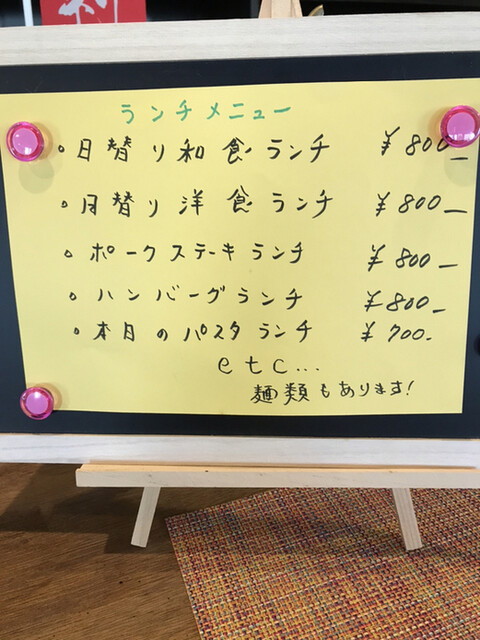 ランチメニュー
・日替り和食ランチ ¥800-
・日替り洋食ランチ ¥800-
・ポークステーキランチ ¥800-
・ハンバーグランチ ¥800-
・本日のパスタランチ ¥700-
etc...
麺類もあります!